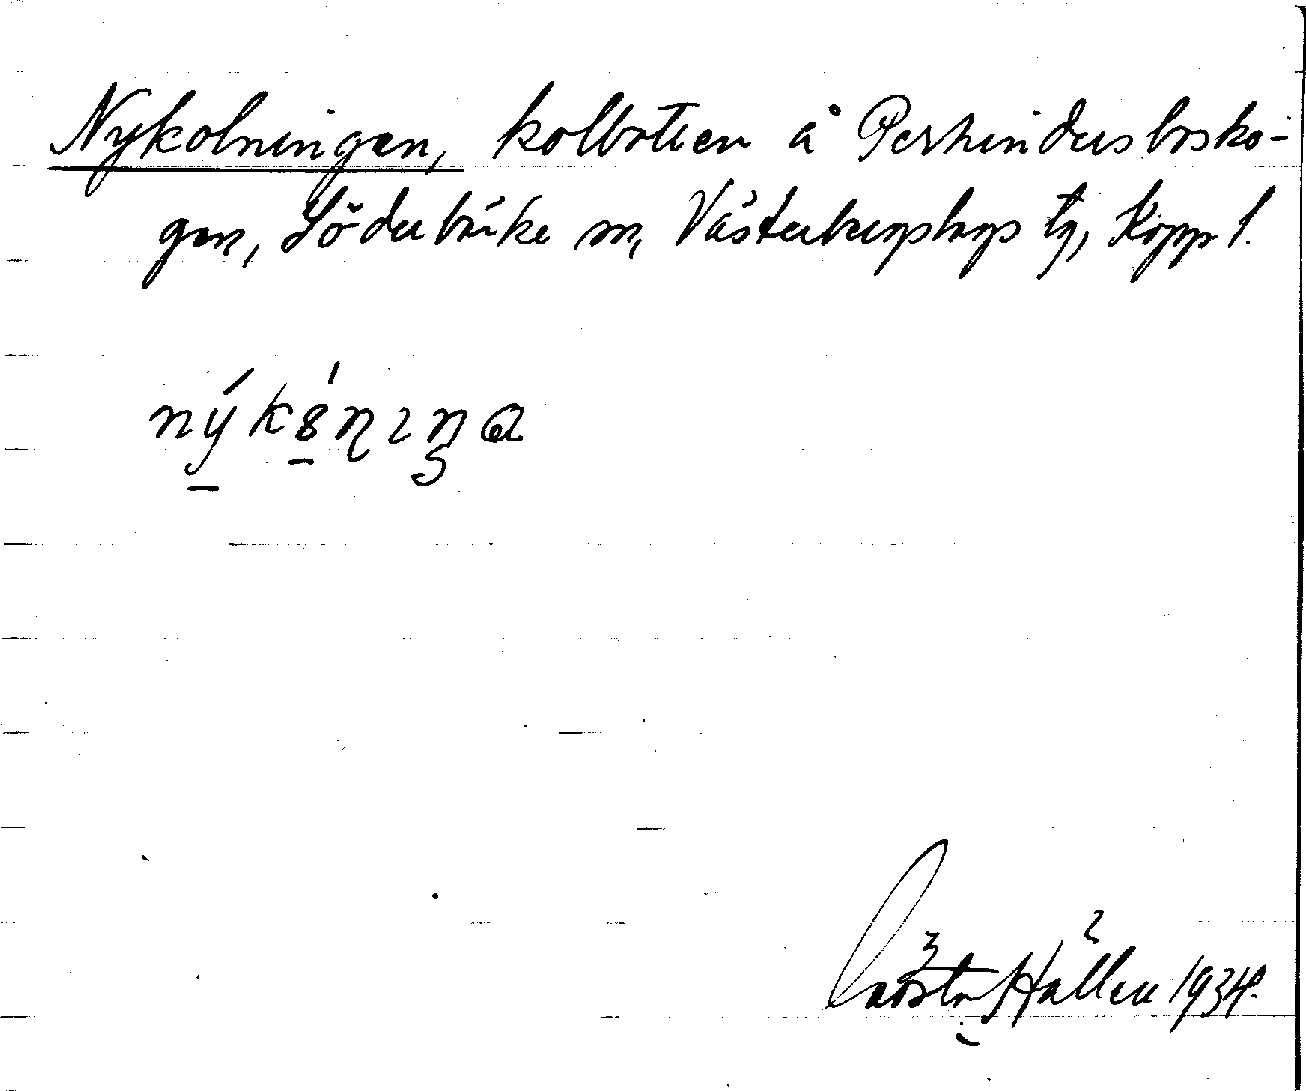 Nykolningen, kolbotten å Pershindersbosko-
gen, Söderbärke sn, Västerbergslags tg, Kopp l.
Hällen 1934.